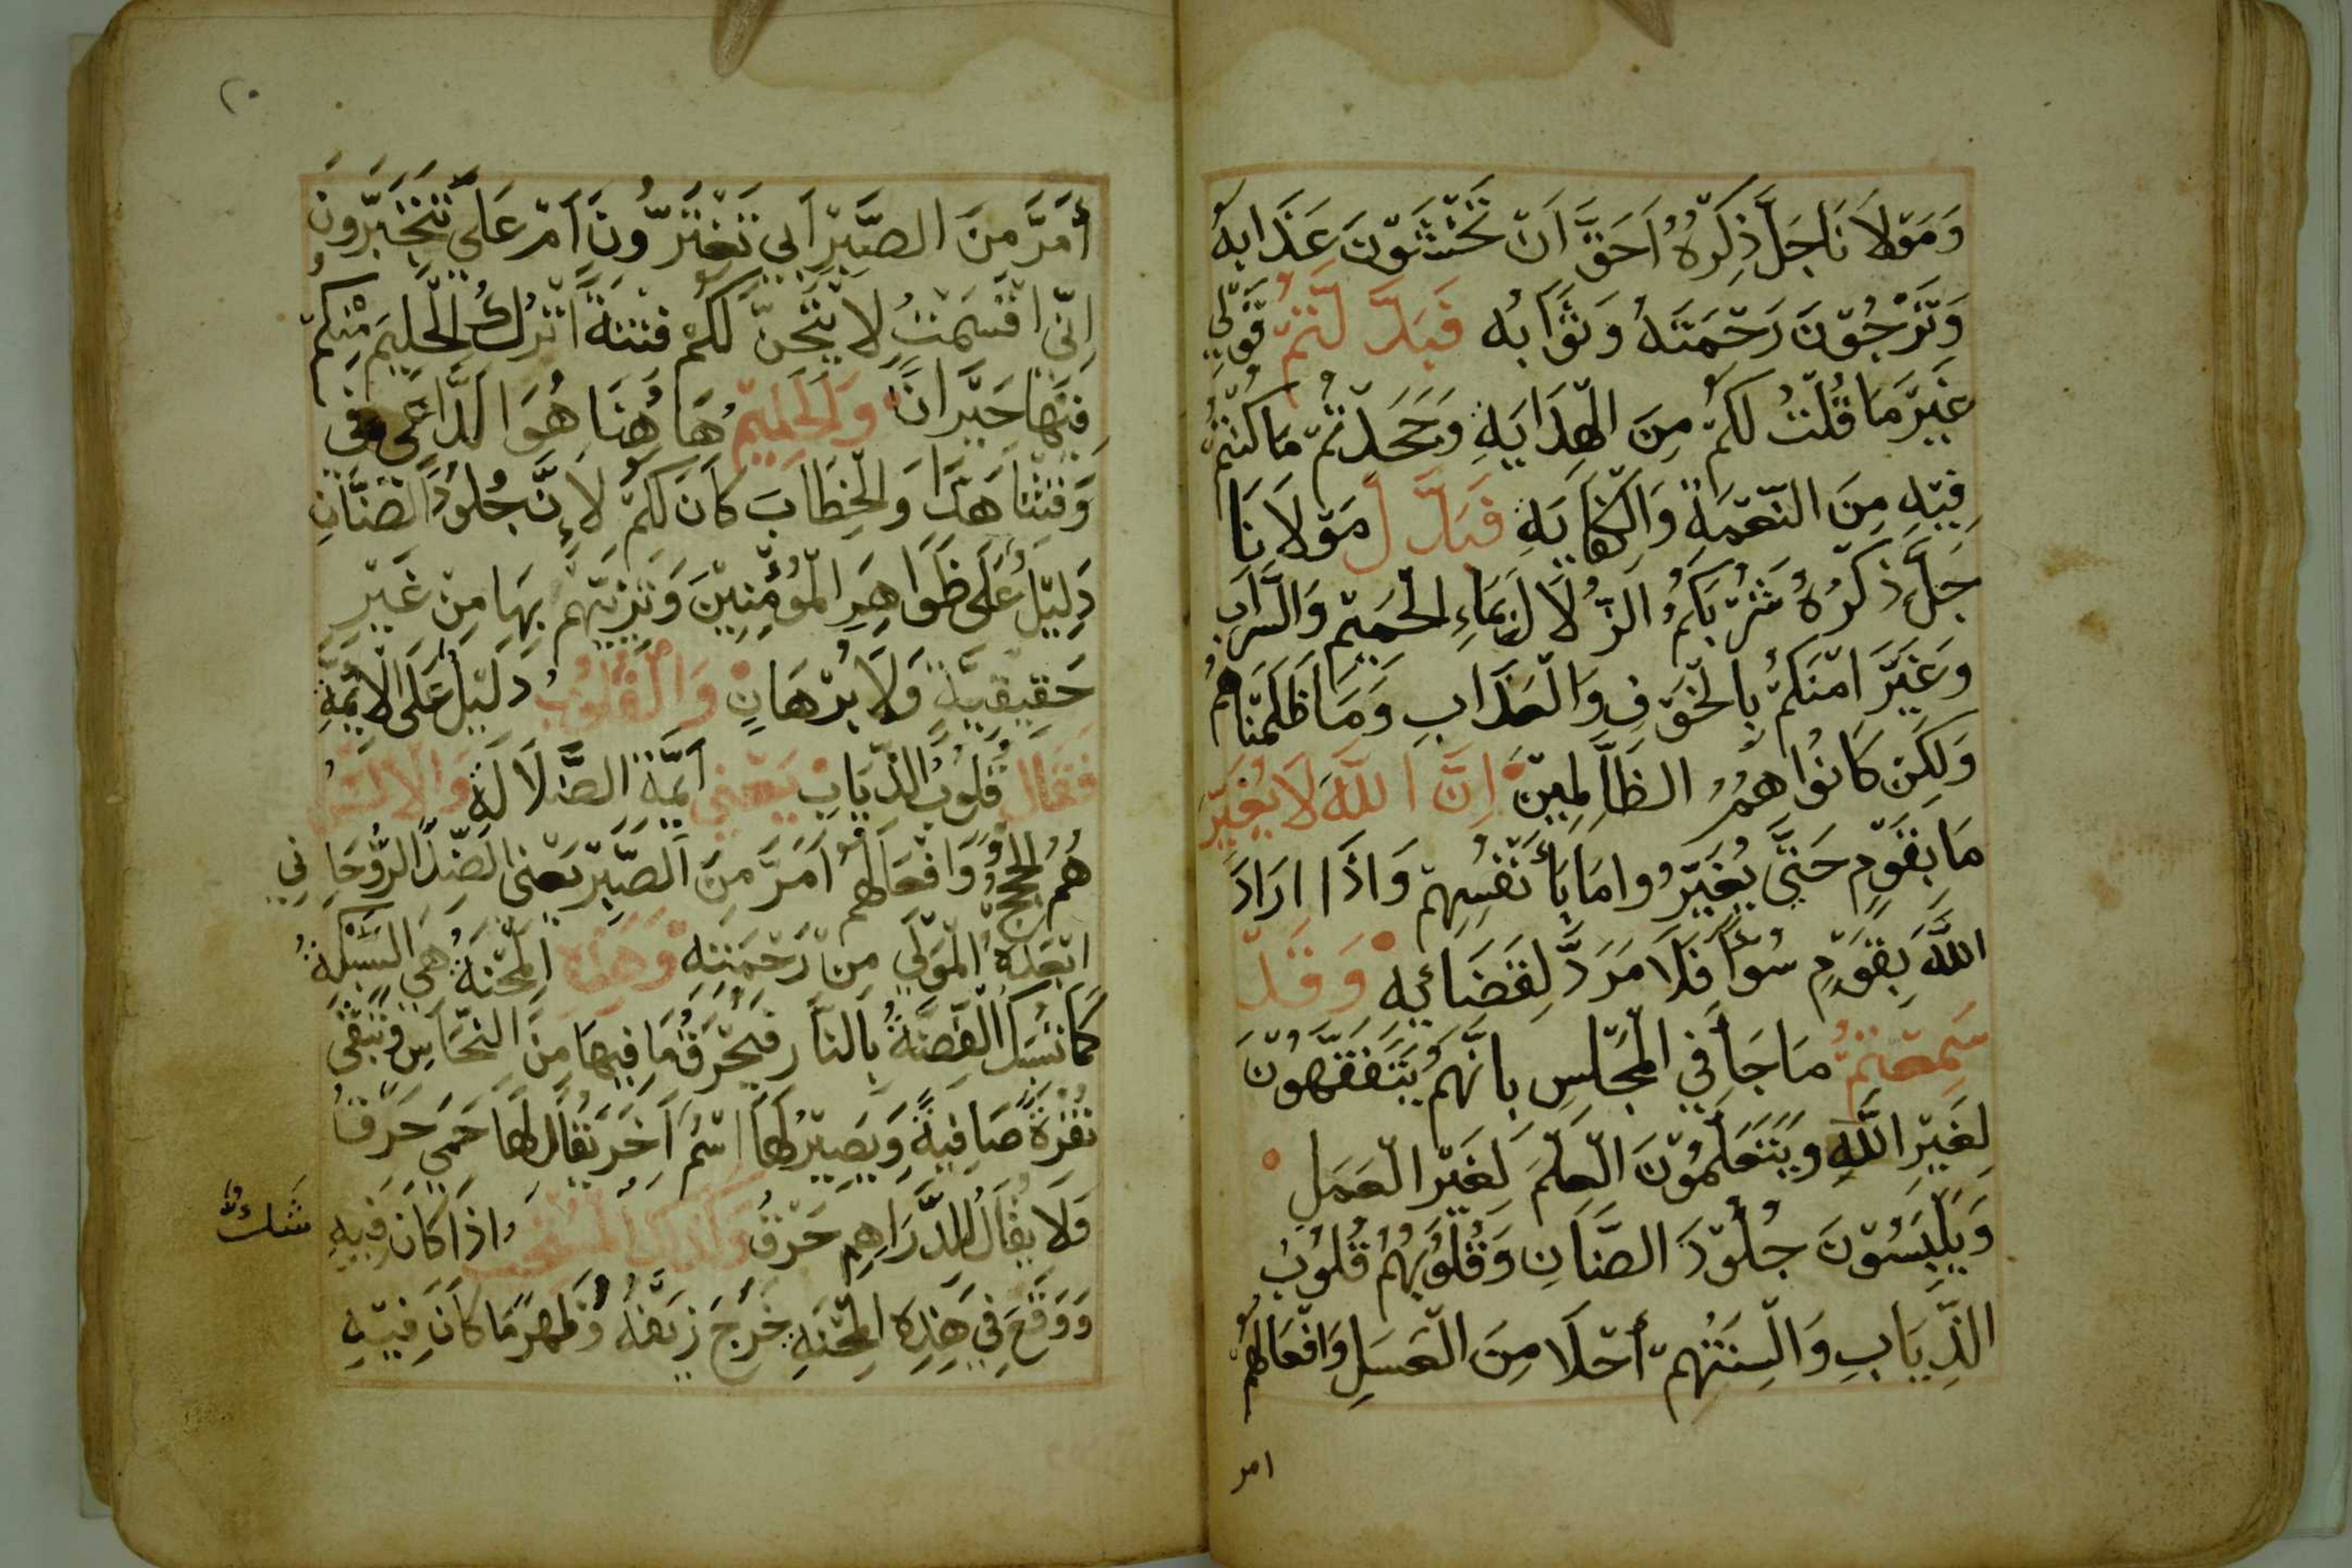 وَمَوْلَانَا جَلَّ ذِكْرُهُ اَحَقَّ اَنْ تَخْشَوْنَ عَذَابَهُ
وَتَرْجُوْنَ رَحْمَتَهُ وَثَوَابَه فَبَدَّلْتُمْ قَوْلِي
غَيْرَ مَا قُلْتُ لَكُمْ مِنَ الْهِدَايَةِ وَجَحَدْتُمْ مَا كُنْتُمْ
فِيْهِ مِنَ النِّعْمَةِ وَالْكِفَايَةِ فَبَدَّلَ مَوْلَانَا
جَلَّ ذِكْرُهُ شُرْبَكُمُ الزُّلَالَ بِمَاءِ الْحَمِيْمِ وَالسَّرَابِ
وَغَيَّرَ اَمْنَكُمْ بِالْخَوْفِ وَالْعَذَابِ وَمَا ظَلَمْنَاهُمْ
وَلَكِنْ كَانُوا هُمُ الظَّالِمِيْنَ اِنَّ اللَّهَ لَا يُغَيِّرُ
مَا بِقَوْمٍ حَتَّى يُغَيِّرُوا مَا بِأَنْفُسِهِمْ وَاذَا ارَادَ
اللَّهُ بِقَوْمٍ سُوْأً فَلَا مَرَدَّ لِقَضَائِهِ وَقَدْ
سَمِعْتُمْ مَا جَأَ فِي الْمَجَالِسِ بِانَّهُمْ يَتَفَقَّهُوْنَ
لِغَيْرِ اللَّهِ وَيَتَعَلَّمُوْنَ الْعِلْمَ لِغَيْرِ الْعَمَلِ
وَيَلْبَسُوْنَ جُلُوْدَ الضَّنَانِ وَقُلُوْبُهُمْ قُلُوْبُ
الذِّيَابِ وَالْسِنَتُهُمْ أَحْلَا مِنَ الْعَسَلِ وَافْعَالُهُمْ
امر
٢٠
أَمَرَّ مِنَ الصَّبْرِ اَبِي تَغْتَرُّونَ اَمْ عَلَي تَتَجَبَّرُونَ
اِنِّي اقْسَمْتُ لَا يُتِحَنَّ لَكُمْ فِتْنَةً اَتْرُكُ الْحَلِيْمَ مِنْكُمْ
فِيْهَا حَيْرَانًا وَلْحَلِيْمُ هَاهُنَا هُوَ الدَّاعِي وفى
وَقْتِنَا هَذَا وَالْخِطَابَ كَانَ لَكُمْ لِاَنَّ جُلُوْدَ الضَّنَانِ
دَلِيْلُ عَلَى ظَوَاهِرِ الْمُؤْمِنِيْنَ وَتَزَيِّيْهِمْ بِهَا مِنْ غَيْرِ
حَقِيْقِيَّةٍ وَلَا بُرْهَانٍ وَالْقُلُوْبُ دَلِيْلُ عَلَى الْأَئِمَّةِ
فَقَالَ قُلُوْبُ الذِّيَابِ يَعْنِي اَيِمَّةِ الضَّلَالَةِ وَالالْسُن
هُمُ الْحُجَجُ وَافْعَالُهُمْ اَمَرَّ مِنَ الصَّبْرِ يَعْنِي الضِّدَّ الرُّوْحَانِي
ابْعَدَهُ الْمَوْلَى مِنْ رَحْمَتِهِ وَهَذِهِ الْمِحْنَةُ هِيَ السَّبْكَةُ
كَمَا تُسْبَكُ الْفِضَّةُ بِالنَّارِ فَيُحْرَقُ مَا فِيْهَا مِنَ النُّحَاسِ وَتَبْقَى
نُقْرَةً صَافِيَةً وَيَصِيْرُ لَهَا اسْمُ اَخَرَ يُقَالُ لَهَا حَمِي حَرْقُ
وَلَا يُقَالُ لِلدَّرَاهِمِ حَرْقُ وَكَذَلِكَ الْمُسْتَجِيْبُ اذَا كَانَ فِيْهِ شَكٌ
وَوَقَعَ فِي هَذِهِ الْمِحْنَةِ خَرَجَ زَيْفُهُ وَظَهَرَ مَا كَانَ فِيْهِ